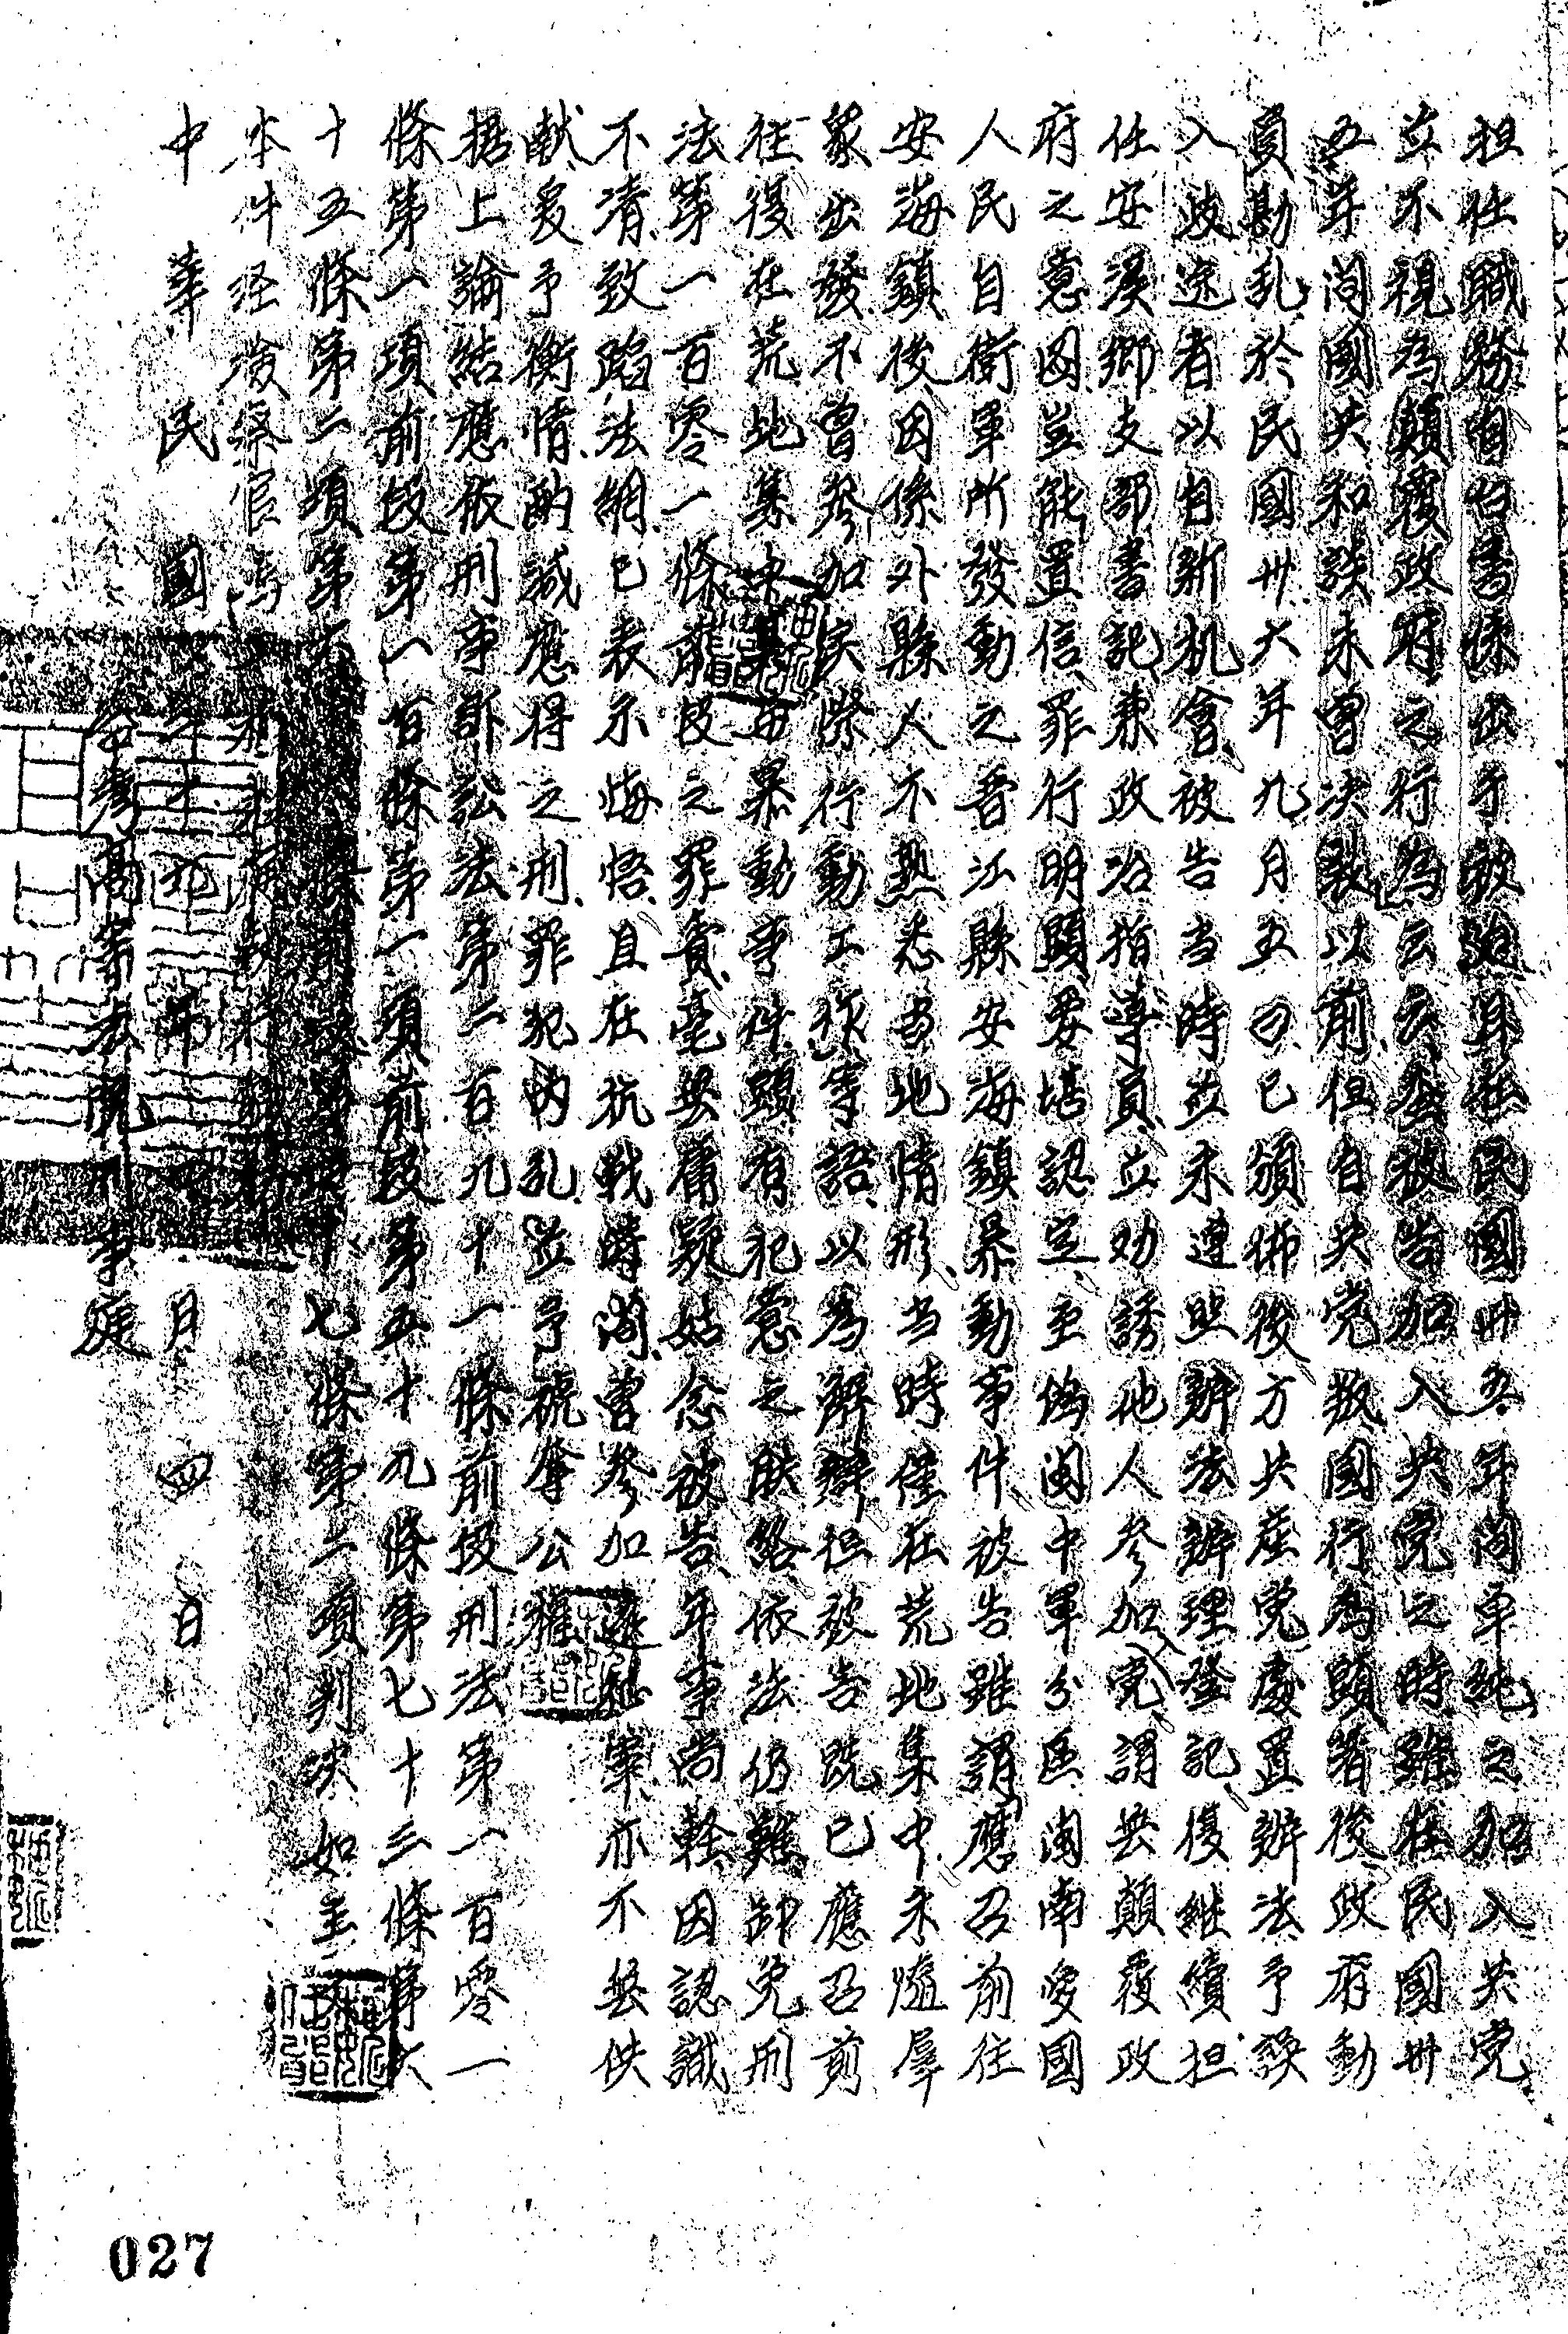 担任職務自白書係出于被迫且在民國卅五年间單純之加入共党
並不視為顛覆政府之行為云云查被告加入共党之時雖在民國卅
五年间國共和談未曾决裂以前但自共党叛國行為顕著後政府動
員勘乱於民國卅六年九月五日已頒佈後方共產党處置辦法予誤
入歧途者以自新机會被告当時並未遵照辦法辦理登記復継續担
任安溪鄉支部書記兼政治指導員並劝誘他人参加党谓無顛覆政
府之意図豈能置信罪行明顕委堪認定至偽闽中軍分區闽南愛國
人民自衛軍所發動之晋江縣安海鎮暴動事件被告雖謂應召前往
安海鎮後因係外縣人不熟悉当地情形当時僅在荒地集中未隨羣
衆出發不曾參加实際行動工作等語以為辯解但被告既已應召前
往復在荒地集中其毎暴動事件顕有犯意之联絡依法仍難卸免刑
法第一百零一條前段之罪責毫無庸疑姑念被告年事尚軽因認識
不清致陷法網已表示悔悟且在抗戰時间曾參加遠征軍亦不無供
献爰予衡情酌減應得之刑罪犯内乱並予褫奪公權
据上論結應依刑事訴訟法第二百九十一條前段刑法第一百零一
條第一項前段第一百條第一項前段第五十九條第七十三條第六
十五條第二項第六十條前段第十七條第二項判决如主文
本件经檢察官
中華民國年月四日
高等法院刑事庭
027